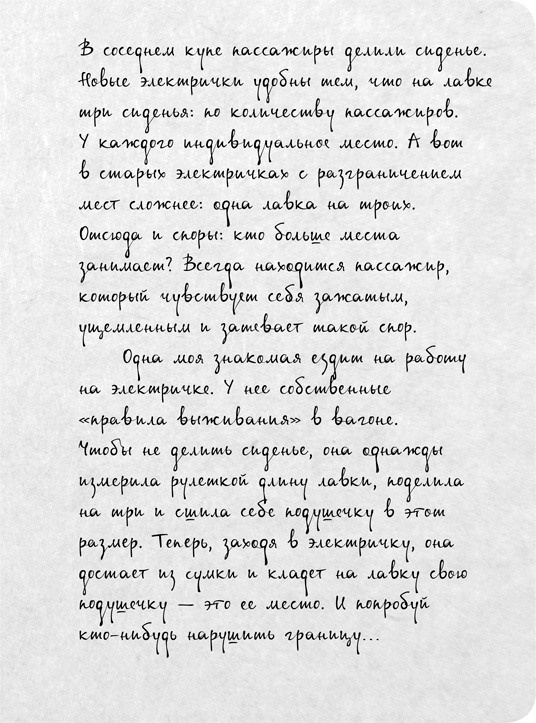 В соседнем купе пассажиры делили сиденье.
Новые электрички удобны тем, что на лавке
три сиденья: по количеству пассажиров.
У каждого индивидуальное место. А вот
в старых электричках с разграничением
мест сложнее: одна лавка на троих.
Отсюда и споры: кто больше места
занимает? Всегда находится пассажир,
который чувствует себя зажатым,
ущемленным и затевает такой спор.
Одна моя знакомая ездит на работу
на электричке. У нее собственные
«правила выживания» в вагоне.
Чтобы не делить сиденье, она однажды
измерила рулеткой длину лавки, поделила
на три и сшила себе подушечку в этот
размер. Теперь, заходя в электричку, она
достает из сумки и кладет на лавку свою
подушечку — это ее место. И попробуй
кто-нибудь нарушить границу...